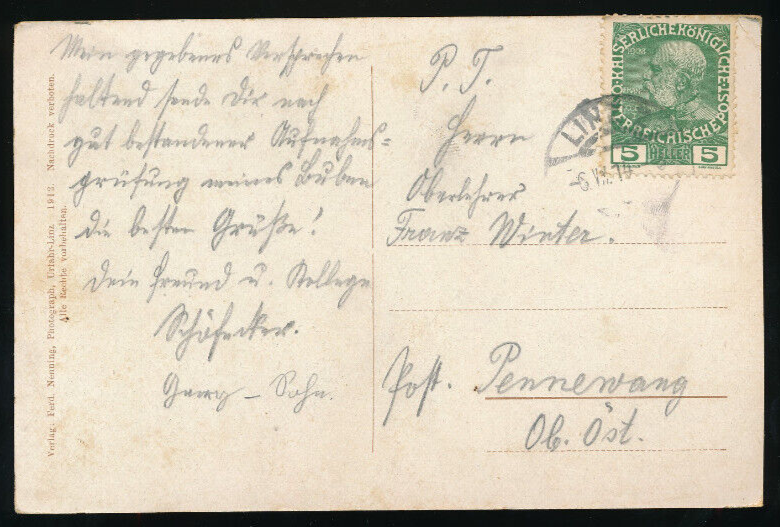 Mein gegebenes Versprechen
haltend sende Dir nach
gut bestandener Aufnahms=
prüfung meines Buben
die besten Grüße!
Dein Freund u. Kollege
Schöfecker.
Georg – Sohn.
P. T.
Herrn
Oberlehrer
Franz Winter.
Post. Pennewang
Ob. Öst.
KAISERLICHE KÖNIGLICHE
ÖSTERREICHISCHE POST
1908
5 HELLER 5
LINZ
Verlag: Ferd. Nenning, Photograph, Urfahr-Linz. 1912. Nachdruck verboten.
Alle Rechte vorbehalten.